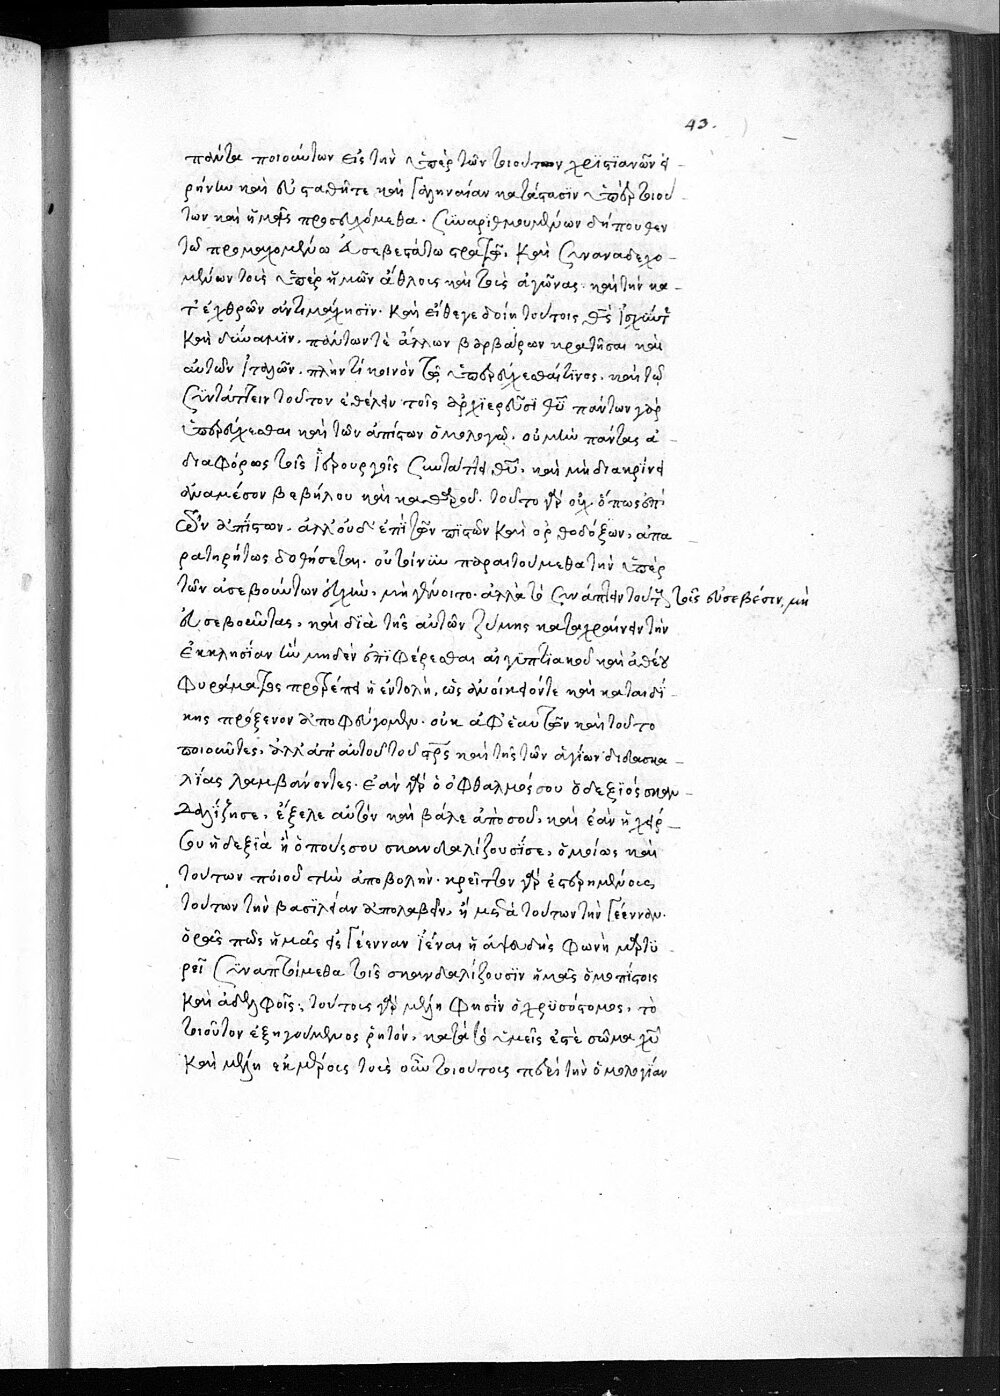 43.
πάντα ποιούντων εἰς τὴν ὑπὲρ τῶν τοιούτων χριστιανῶν εἰ
ρήνην καὶ εὐσταθῆ τε καὶ γαληναίαν κατάστασϊν ὑπὲρ τοιού
των καὶ ἡμεῖς προσευχόμεθα. συναριθμουμένων δήπουθεν
τῶ προμαχομένω εὐσεβεστάτω στρατῶ, καὶ συναναδεχο
μένων τοῖς ὑπὲρ ἡμῶν ἄθλοις καὶ τοῖς ἀγῶνας. καὶ τὴν κα
τ' ἐχθρῶν ἀντιμάχησϊν. καὶ εἴθεγε δοίη τούτοις θς ἰσχύν τε
καὶ δύναμϊν. πάντων τὲ ἄλλων βαρβάρων κρατῆσαι καὶ
αὐτῶν ἰταλῶν. πλὴν τί κοινὸν τῶ ὑπερεύχεσθαί τϊνος. καὶ τῶ
συντάττειν τοῦτον ἐθέλειν τοῖς ἀρχϊερεῦσϊ θῦ πάντων γὰρ
ὑπερεύχεσθαι καὶ τῶν ἀπίστων ὁμολογῶ. οὐ μὴν πάντας ἀ
διαφόρως τοῖς ἱερουργοῖς συντάττει θῦ, καὶ μὴ διακρίνει
ἀναμέσον βεβήλου καὶ καθαροῦ. τοῦτο γὰρ οὐχ ὅπως ἐπὶ
τῶν ἀπίστων. ἀλλ' οὐδ' ἐπὶ τῶν πϊστῶν καὶ ὀρθοδόξων, ἀπα
ρατηρήτως δοθήσεται. οὐ τοίνυν παραιτούμεθα τὴν ὑπὲρ
τῶν ἀσεβούντων εὐχὴν, μὴ γένοιτο. ἀλλὰ τὸ συνάπτειν τούτους τοῖς εὐσεβέσιν, μὴ
εὐσεβοῦντας, καὶ δϊὰ τῆς αὐτῶν ζύμης καταχραίνειν τὴν
ἐκκλησίαν ἣν μηδὲν ἐπϊφέρεσθαι αἰγϋπτϊακοῦ καὶ ἀθέου
φυράματος προτρέπει ἡ ἐντολὴ, ὡς ἀνοίκειόν τε καὶ καταδί
κης πρόξενον ἀποφεύγομεν. οὐκ ἀφ' ἑαυτῶν καὶ τοῦτο
ποιοῦντες, ἀλλ' ἀπ' αὐτοῦ τοῦ σρς καὶ τῆς τῶν ἁγίων διδασκα
λίας λαμβάνοντες. ἐὰν γὰρ ὁ ὀφθαλμός σου ὁ δεξϊός σκαν
δαλίζησε, ἔξελε αὐτὸν καὶ βάλε ἀπὸ σοῦ, καὶ ἐὰν ἡ χείρ
σου ἡ δεξϊὰ ἢ ὁ πούς σου σκανδαλίζουσίσε, ὁμοίως καὶ
τούτων ποιοῦ τὴν ἀποβολήν. κρεῖττον γὰρ ἐστερημένοις
τούτων τὴν βασϊλείαν ἀπολαβεῖν, ἢ μετὰ τούτων τὴν γέενναν.
ὁρᾶς πῶς ἡμᾶς εἰς γέενναν ϊέναι ἡ ἀψευδὴς φωνὴ μαρτϋ
ρεῖ συναπτόμεθα τοῖς σκανδαλίζουσϊν ἡμᾶς ὁμοπίστοις
καὶ ἀδελφοῖς, τούτοις γὰρ μέλη φησϊν ὁ χρϋσόστομος, τὸ
τοιοῦτον ἐξηγούμενος ῥητόν, κατὰ τὸ ὑμεῖς ἐστὲ σῶμα χῦ
καὶ μέλη ἐκ μέρους τοῖς οὖν τοιούτοις περὶ τὴν ὁμολογίαν